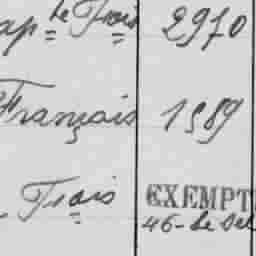 ap. le Frois 2970
Français 1989
Frois EXEMPT
46-